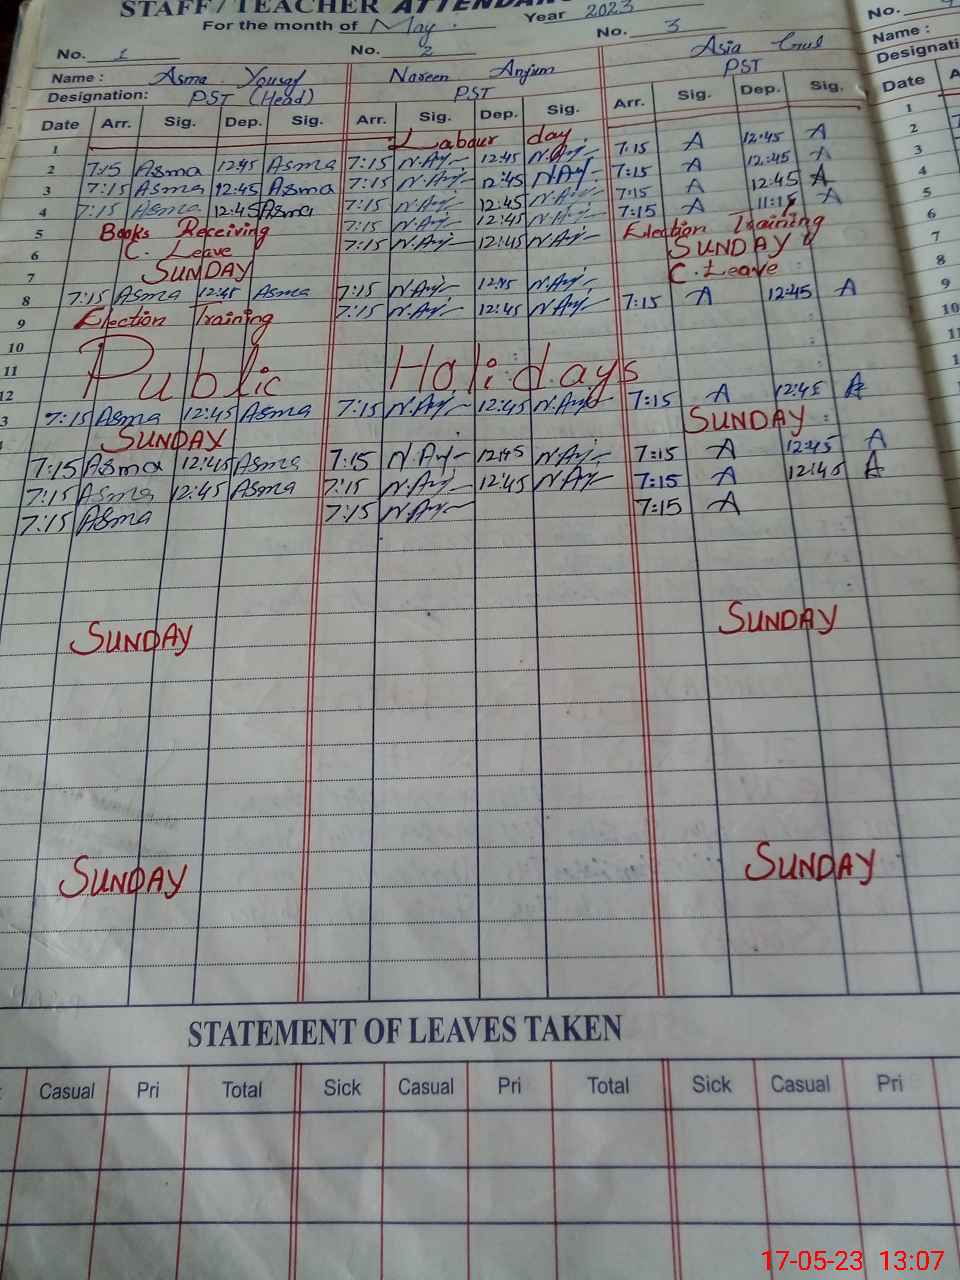 STAFF / TEACHER ATTENDAN
For the month of May. Year 2023
No. 1 No. 2 No. 3 No.
Name : Asma Yousaf Naseen Anjum Asia Gul Name :
Designation: PST (Head) PST PST Designati
Date Arr. Sig. Dep. Sig. Arr. Sig. Dep. Sig. Arr. Sig. Dep. Sig. Date A
1 Labour day 1
2 7:15 Asma 12:45 Asma 7:15 N.Anj 12:45 N.Anj 7:15 A 12:45 A 2
3 7:15 Asma 12:45 Asma 7:15 N.Anj 12:45 N.Anj 7:15 A 12:45 A 3
4 7:15 Asma 12:45 Asma 7:15 N.Anj 12:45 N.Anj 7:15 A 12:45 A 4
5 Books Receiving 7:15 N.Anj 12:45 N.Anj 7:15 A 11:15 A 5
6 C. Leave 7:15 N.Anj 12:45 N.Anj Election Training 6
7 SUNDAY SUNDAY 7
8 7:15 Asma 12:45 Asma 7:15 N.Anj 12:45 N.Anj C. Leave 8
9 Election Training 7:15 N.Anj 12:45 N.Anj 7:15 A 12:45 A 9
10 10
11 Public Holidays
12
3 7:15 Asma 12:45 Asma 7:15 N.Anj 12:45 N.Anj 7:15 A 12:45 A
SUNDAY SUNDAY
7:15 Asma 12:45 Asma 7:15 N.Anj 12:45 N.Anj 7:15 A 12:45 A
7:15 Asma 12:45 Asma 7:15 N.Anj 12:45 N.Anj 7:15 A 12:45 A
7:15 Asma 7:15 N.Anj 7:15 A
SUNDAY SUNDAY
SUNDAY SUNDAY
STATEMENT OF LEAVES TAKEN
Casual Pri Total Sick Casual Pri Total Sick Casual Pri
17-05-23 13:07